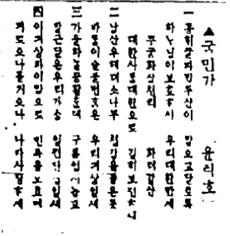 ▲국민가 윤치호
一 동해물과백두산이 말으고달토록
하나님이보호하사 우리대한만세
무궁화삼천리 화려강산
대한사람대한으로 길이보전하세
二 남산우헤뎌소나무 철갑을둘은듯
바람이슬불변함은 우리긔상일세
三 가을하날공활한대 구름업시놉고
밝은달은우리가슴 일편단심일세
四 이긔상과이마음으로
괴로오나질거오나 나라사랑하세